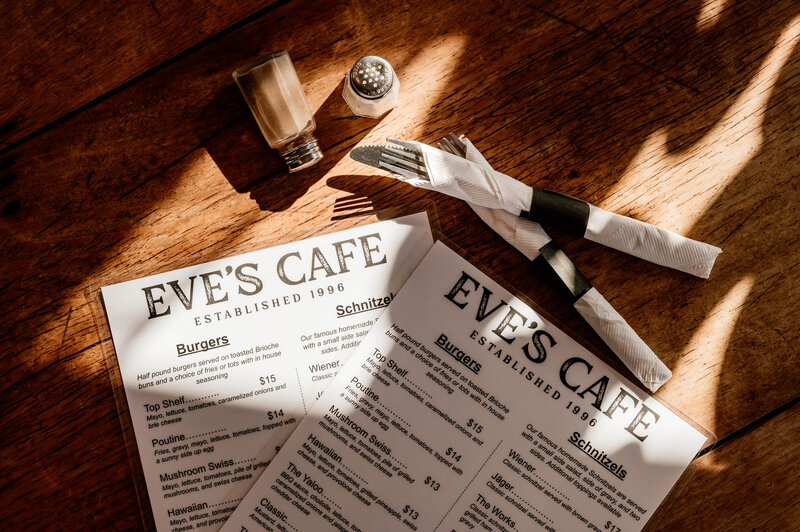 EVE'S CAFE
ESTABLISHED 1996
Burgers
Half pound burgers served on toasted Brioche
buns and a choice of fries or tots with in house
seasoning
Top Shelf $15
Mayo, lettuce, tomatoes, caramelized onions and
brie cheese
Poutine $14
Fries, gravy, mayo, lettuce, tomatoes, topped with
a sunny side up egg
Mushroom Swiss
Mayo, lettuce, tomatoes, pile of grilled
mushrooms, and swiss cheese
Hawaiian
Mayo, lettuce, tomatoes,
cheese, and
Schnitzels
Our famous homemade
with a small side salad
sides. Additional
Wiener
Classic
EVE'S CAFE
ESTABLISHED 1996
Burgers
Half pound burgers served on toasted Brioche
buns and a choice of fries or tots with in house
seasoning
Top Shelf $15
Mayo, lettuce, tomatoes, caramelized onions and
brie cheese
Poutine $14
Fries, gravy, mayo, lettuce, tomatoes, topped with
a sunny side up egg
Mushroom Swiss $13
Mayo, lettuce, tomatoes, pile of grilled
mushrooms, and swiss cheese
Hawaiian $13
Mayo, lettuce, tomatoes, grilled pineapple, swiss
cheese, and
The Yaloo $14
BBQ sauce, chipotle, lettuce, tomatoes,
cheddar cheese, onion
Classic
Mustard,
Schnitzels
Our famous homemade Schnitzels are served
with a small side salad, side of gravy, and two
sides. Additional toppings available
Wiener
Classic schnitzel
Jäger
Classic schnitzel served with brown
gravy
The Works